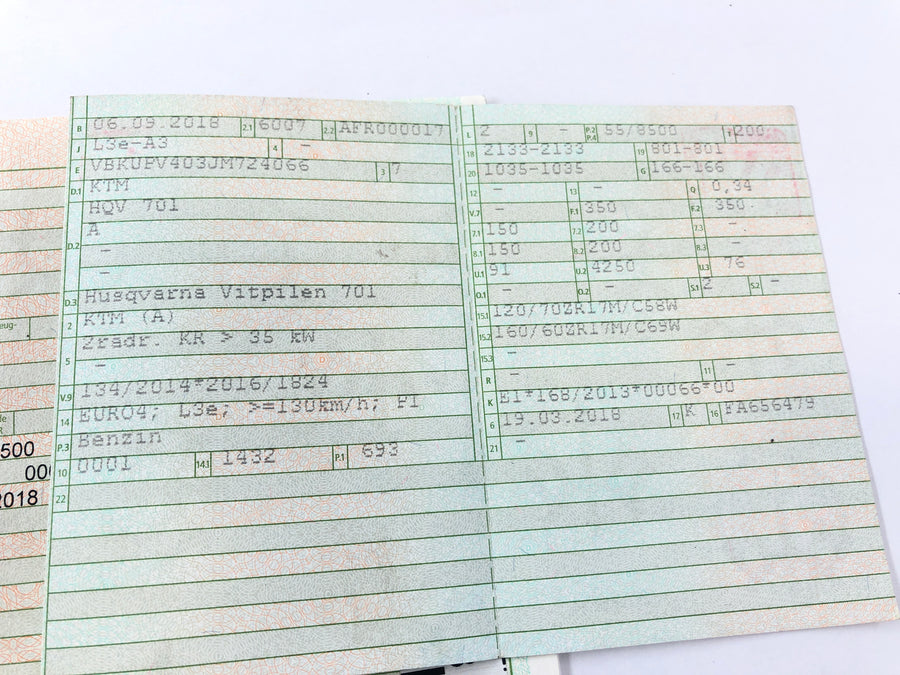 B 06.09.2018 2.1 6007 2.2 AFR000017
J L3e-A3 4 -
E VBKUPV403JM724066 3 7
D.1 KTM
HQV 701
D.2 A
-
-
D.3 Husqvarna Vitpilen 701
2 KTM (A)
5 2rädr. KR > 35 kW
-
V.9 134/2014*2016/1824
14 EURO4; L3e; >=130km/h; PI
P.3 Benzin
10 0001 14.1 1432 P.1 693
22
L 2 9 - P.2 P.4 55/8500 T 200
18 2133-2133 19 801-801
20 1035-1035 G 166-166
12 - 13 - Q 0,34
V.7 - F.1 350 F.2 350
7.1 150 7.2 200 7.3 -
8.1 150 8.2 200 8.3 -
U.1 91 U.2 4250 U.3 76
O.1 - O.2 - S.1 2 S.2 -
15.1 120/70ZR17M/C58W
15.2 160/60ZR17M/C69W
15.3 -
R - 11 -
K E1*168/2013*00066*00
6 19.03.2018 17 K 16 FA656479
21 -
eug-
500
000
2018